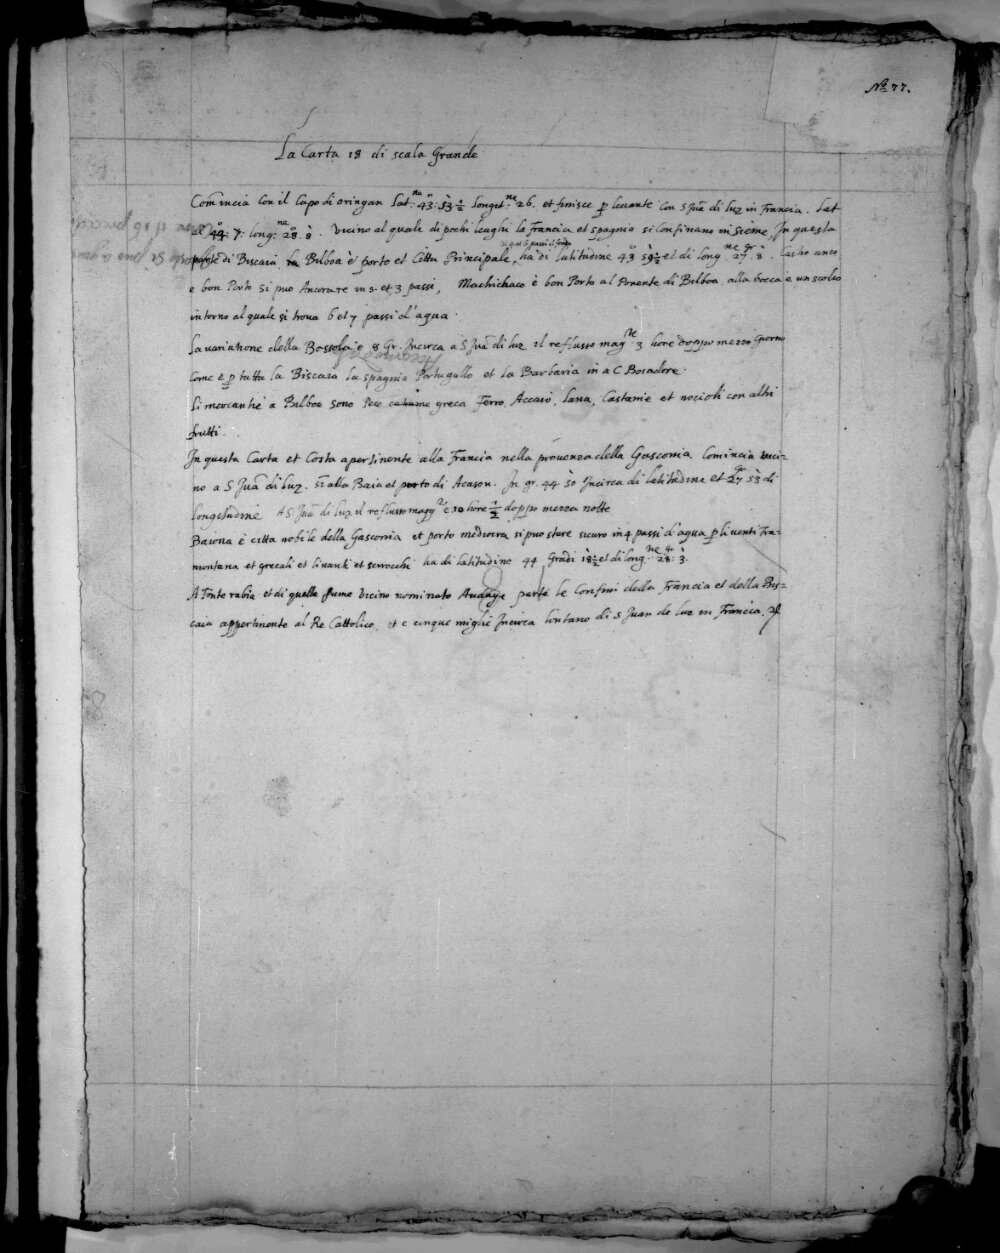 No 77.
La Carta 18 di scala Grande
Comincia con il Capo di oringan Lat:ne 43°: 53 ½ Longit:ne 26. et finisce p levante con S Juã di luz in Francia. Lat
al 44°: 7: long:ne 28°: 8. Vicino al quale di pochi leaghi la Francia et spagnia si confinano insieme, In questa
si qui 6 passi di fondo
parte di Biscaia la Bilboa è porto et Citta Principale, ha di latitudine 43° 59 ½ et di long.ne 27 Gr 8. Castro anco
e bon Porto si puo Ancorare in 8. et 3 passi, Machichaco è bon Porto al Ponente di Bilboa, alla bocca e un scolio
intorno al quale si trova 6 et 7 passi d'aqua.
La variatione della Bossola e 8 Gr. Incirca a S Juã di luz il reflusso mag.re 3 hore doppo mezzo Giorno
come e p tutta la Biscaia la spagnia Portugallo et la Barbaria in a C. Boiadore.
Li mercantie a Bilboa sono Pece greca Ferro, Acciaio, lana, Castanie et nocioli con altri
frutti.
In questa Carta et Costa apertinente alla Francia nella provenza della Gasconia Comincia vici-
no a S Juã di Luz. sì alla Baia et porto di Acason. In gr. 44 50 Incirca di latitudine et 27 gr 53 di
longitudine A S. Juã di luz il reflusso magg.re e 10 hore ½ doppo mezza notte
Baiona è citta nobile della Gasconia et porto mediocra si puo stare sicuro in 4 passi di aqua p li venti Tra-
montana et grecali et livanti et scirocchi ha di latitudine 44 Gradi 18 ½ et di long.ne 28 Gr: 3.
A Fonterabia et di quella fiume vicino nominato Andaye parte le Confini della Francia et della Bis-
caia appertinente al Re Cattolico, et e cinque miglie Incirca lontano di S Juan de luz in Francia.